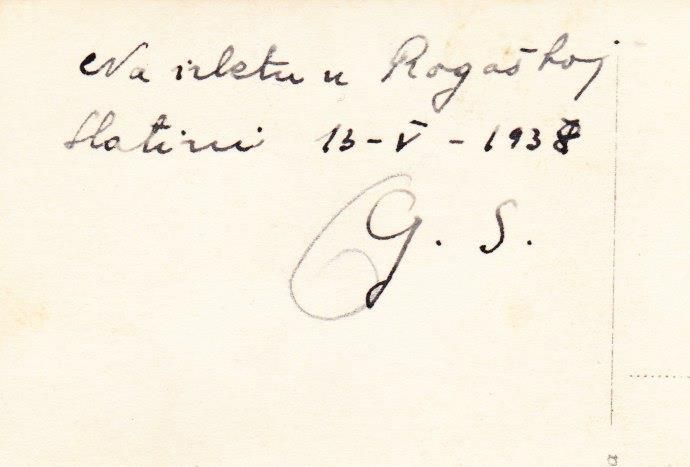 Na izletu u Rogaškoj
Slatini 13-V-1938
G. S.